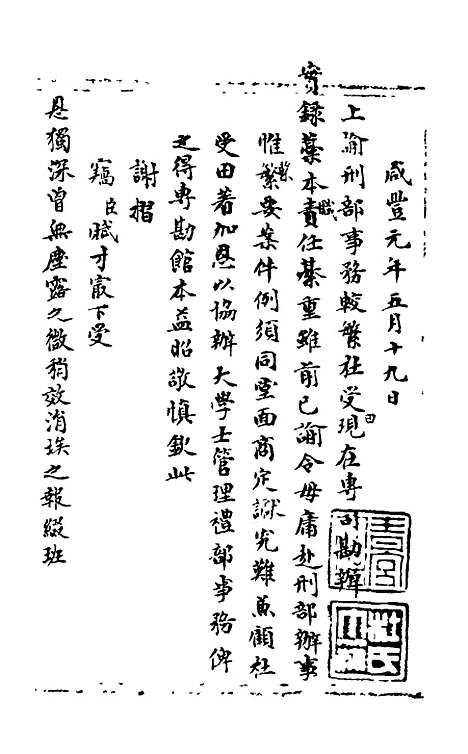 咸豐元年五月十九日
上諭刑部事務較繁杜受田現在專司勘辦
實錄藁本責任綦重雖前已諭令毋庸赴刑部辦事
惟繁要案件例須同堂面商定讞究難兼顧杜
受田著加恩以協辦大學士管理禮部事務俾
之得專勘館本益昭敬慎欽此
謝摺
竊臣賦才最下受
恩獨深曾無塵露之微稍效消埃之報綴班